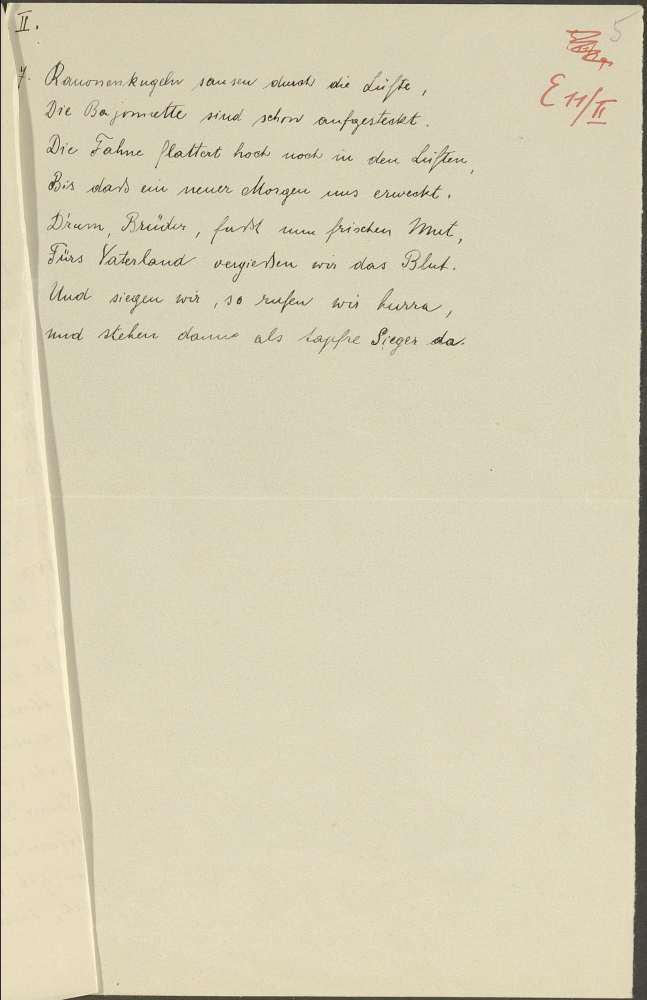 II.
5
E 11/II
7. Kanonenkugeln sausen durch die Lüfte,
Die Bajonnette sind schon aufgesteckt.
Die Fahne flattert hoch noch in den Lüften,
Bis daß ein neuer Morgen uns erweckt.
D'rum, Brüder, faßt nun frischen Mut,
Fürs Vaterland vergießen wir das Blut.
Und siegen wir, so rufen wir hurra,
und stehen dann als tapfre Sieger da.